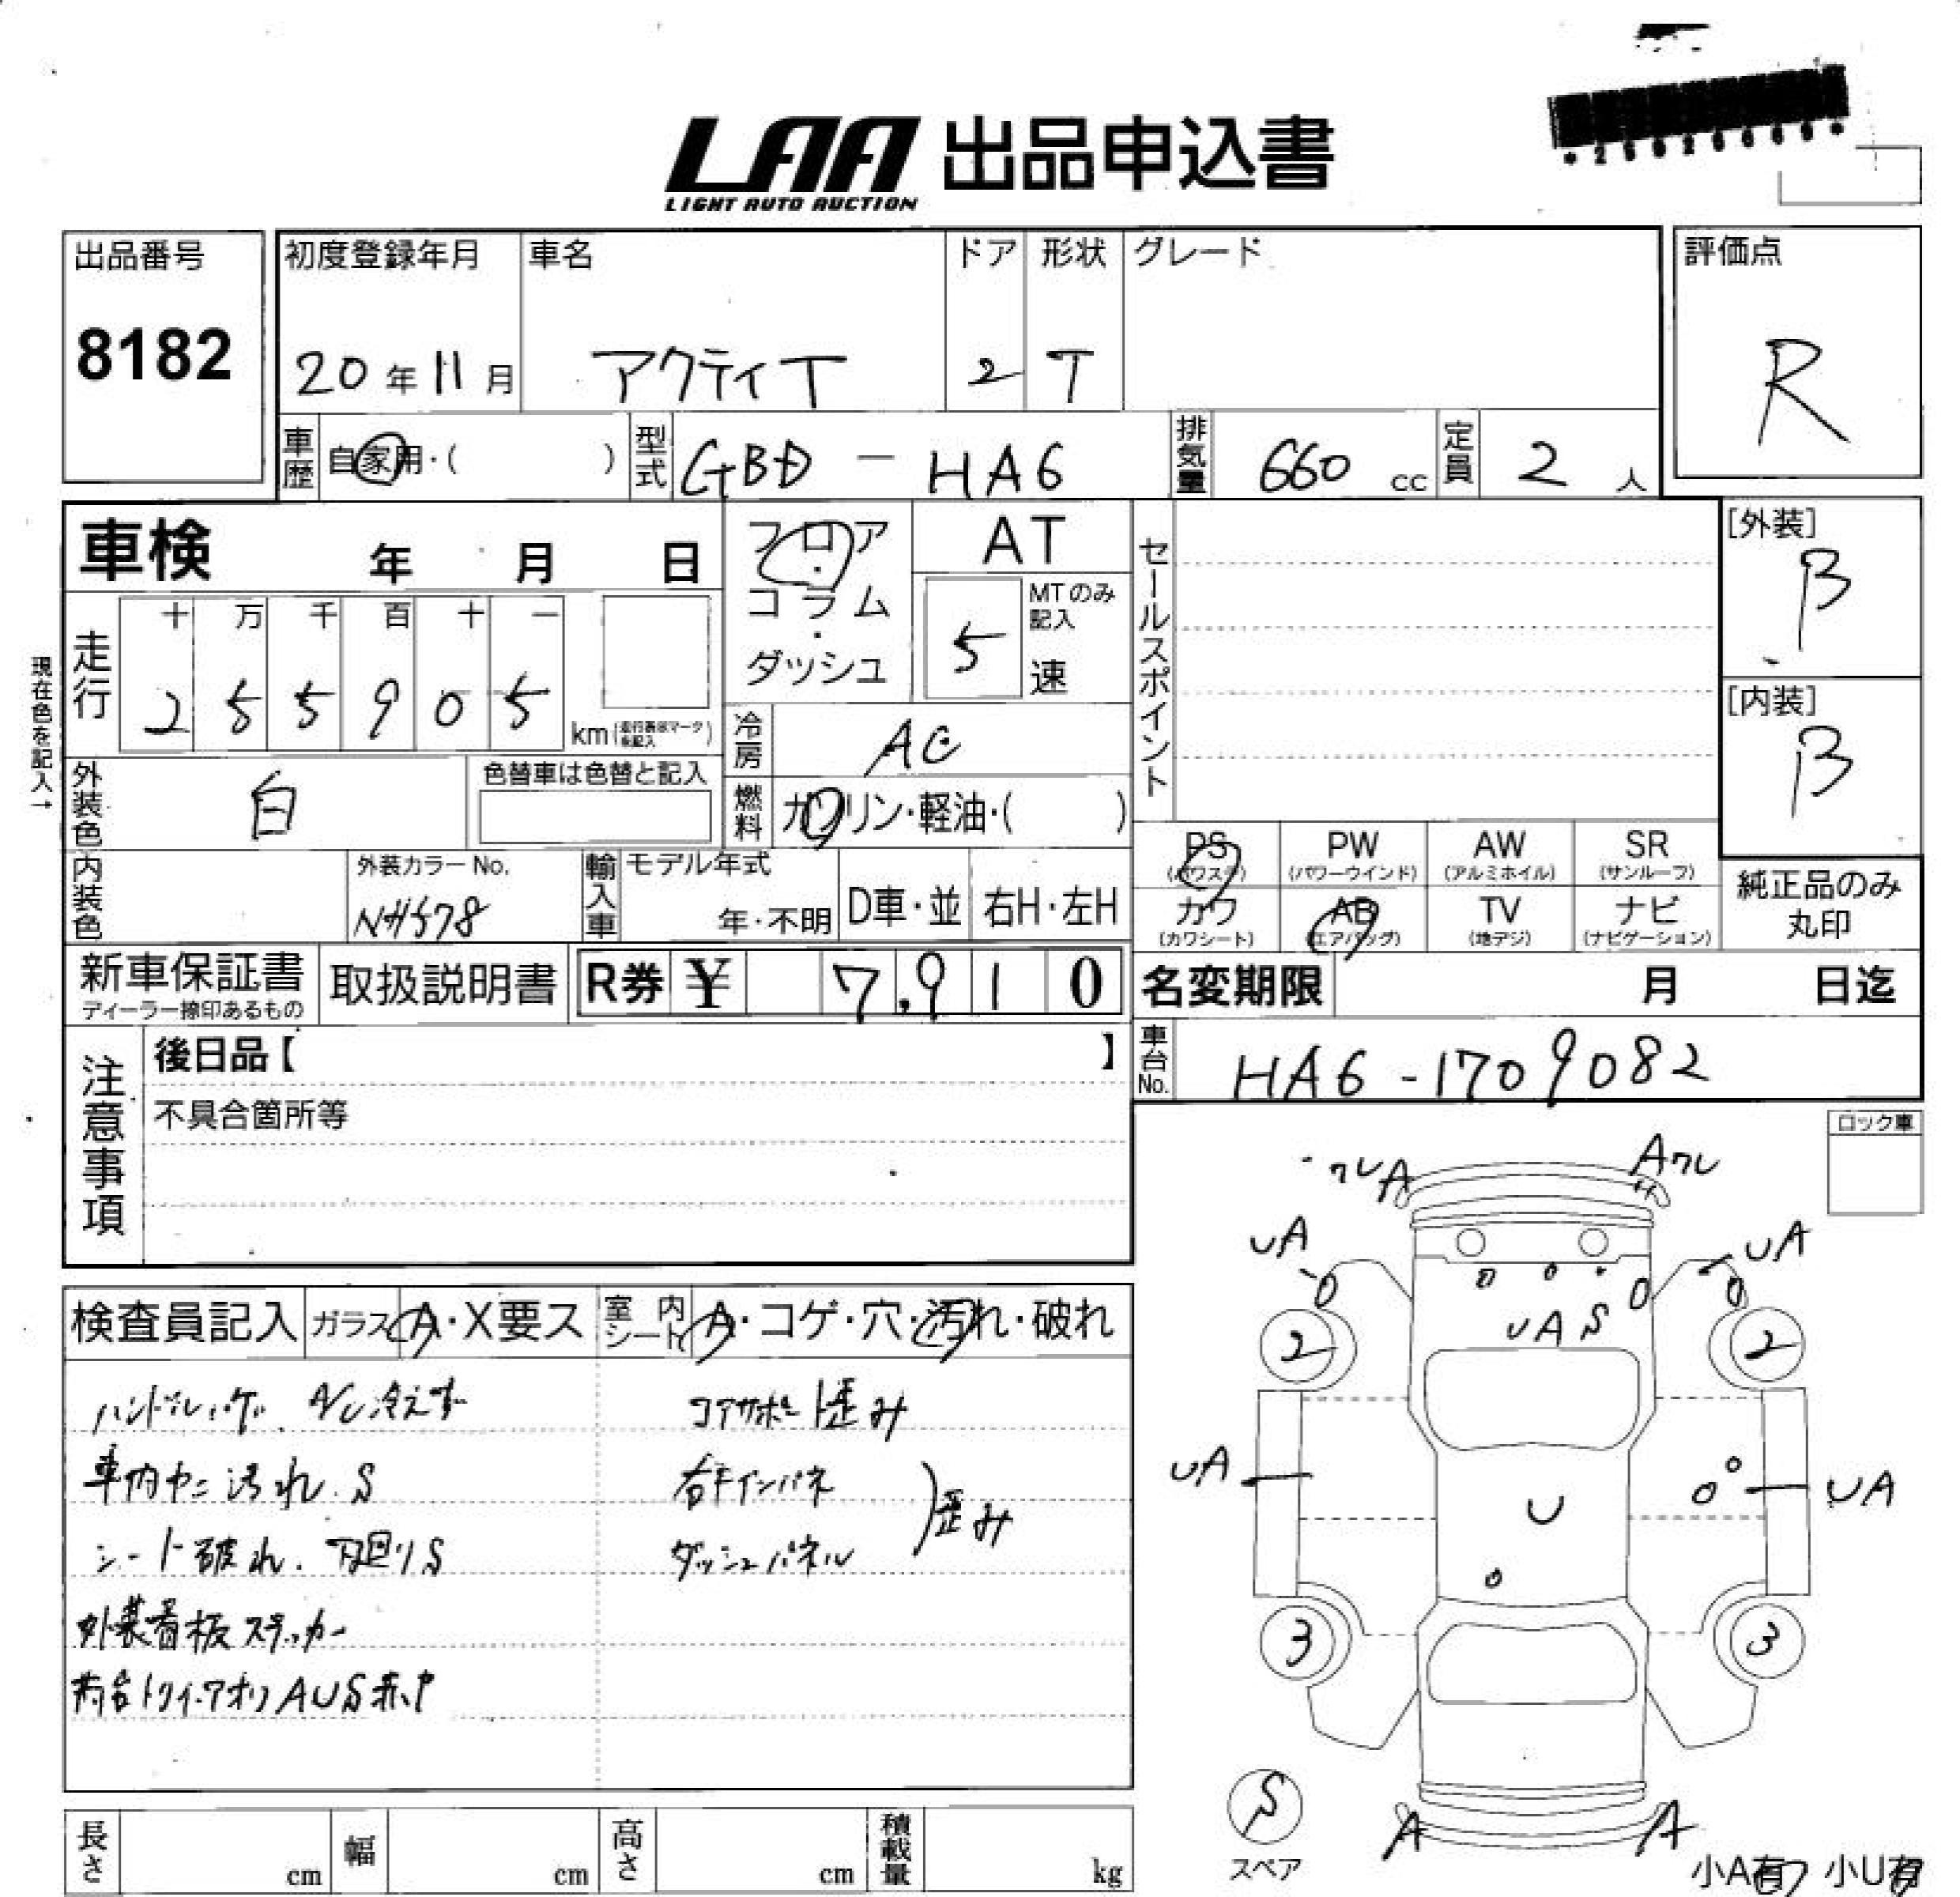 LAA 出品申込書
LIGHT AUTO AUCTION
出品番号
8182
初度登録年月
20年11月
車名
アクティT
ドア
2
形状
T
グレード
評価点
R
車歴
自家用・( )
型式
GBD-HA6
排気量
660 cc
定員
2 人
車検 年 月 日
フロア
・
コラム
・
ダッシュ
AT
5
MTのみ
記入
速
セールスポイント
[外装]
B
[内装]
B
現在色を記入→
走行
十 万 千 百 十 一
2 5 5 9 0 5
km
冷房
AC
外装色
白
色替車は色替と記入
燃料
ガソリン・軽油・( )
内装色
外装カラーNo.
NH578
輸入車
モデル年式
年・不明
D車・並
右H・左H
PS
(パワステ)
PW
(パワーウインド)
AW
(アルミホイル)
SR
(サンルーフ)
カワ
(カワシート)
AB
(エアバッグ)
TV
(地デジ)
ナビ
(ナビゲーション)
純正品のみ
丸印
新車保証書
ディーラー捺印あるもの
取扱説明書
R券 ¥ 7,910
名変期限 月 日迄
注意事項
後日品【 】
不具合箇所等
車台No.
HA6-1709082
ロック車
検査員記入
ガラス
A・X要ス
室内シート
A・コゲ・穴・汚れ・破れ
ハンドルハゲ. A/C冷えず
車内中ニ汚れ.S
シート破れ. 下回りS
外装看板ステッカー
荷台トリイ.アオリAUS
コアサポート歪み
右手インパネ
ダッシュパネル
歪み
ワレA
Aワレ
UA
UA
UAS
2
2
UA
U
UA
3
3
S
スペア
A
A
小A有 小U有
長さ
cm
幅
cm
高さ
cm
積載量
kg